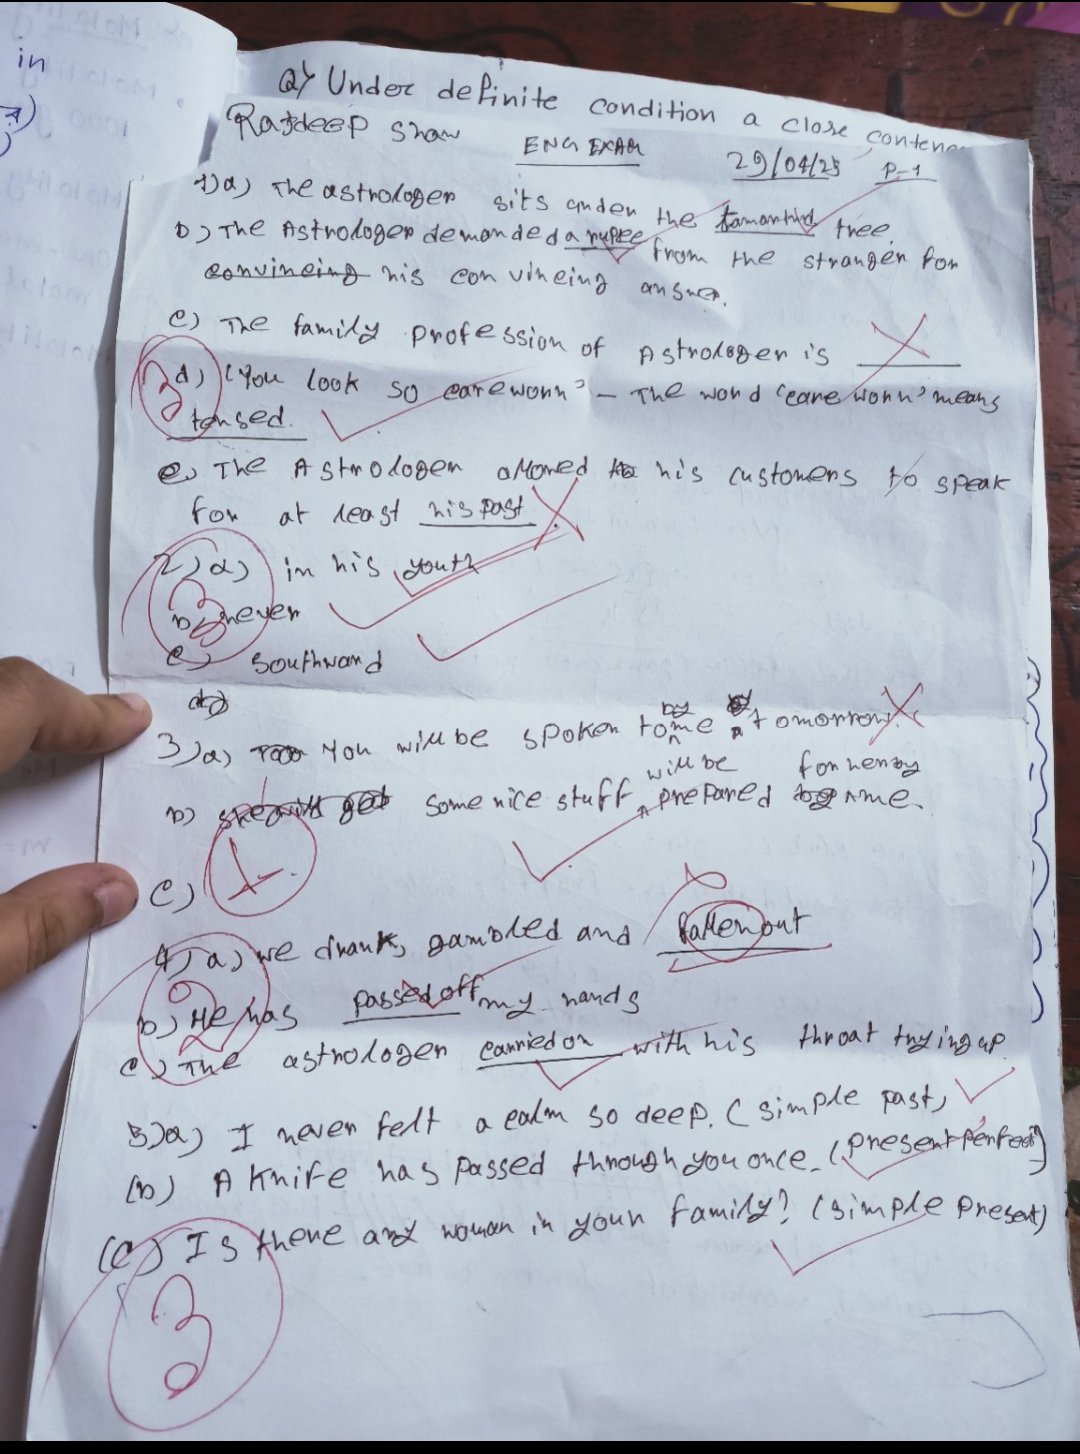 in
Q) Under definite condition a close
Rajdeep Shaw ENG EXAM 29/04/25 P-1
1)a) The astrologer sits under the tamarind tree.
b) The Astrologer demanded a rupee from the stranger for
convinceing his convinceing answer.
c) The family profession of Astrologer is
d) 'You look so careworn' - The word 'care worn' means
tensed.
3
e) The Astrologer allowed to his customers to speak
for at least his past.
2)a) in his youth
b) never
3
c) southward
d)
3)a) You will be spoken to me by tomorrow.
b) some nice stuff will be prepared for henry by me.
1
c)
4)a) we drank, gambled and fallen out
b) He has passed off my hands
2
c) The astrologer carried on with his throat trying up.
5)a) I never felt a calm so deep. (simple past)
(b) A Knife has passed through you once. (present perfect)
(c) Is there any woman in your family? (simple present)
3